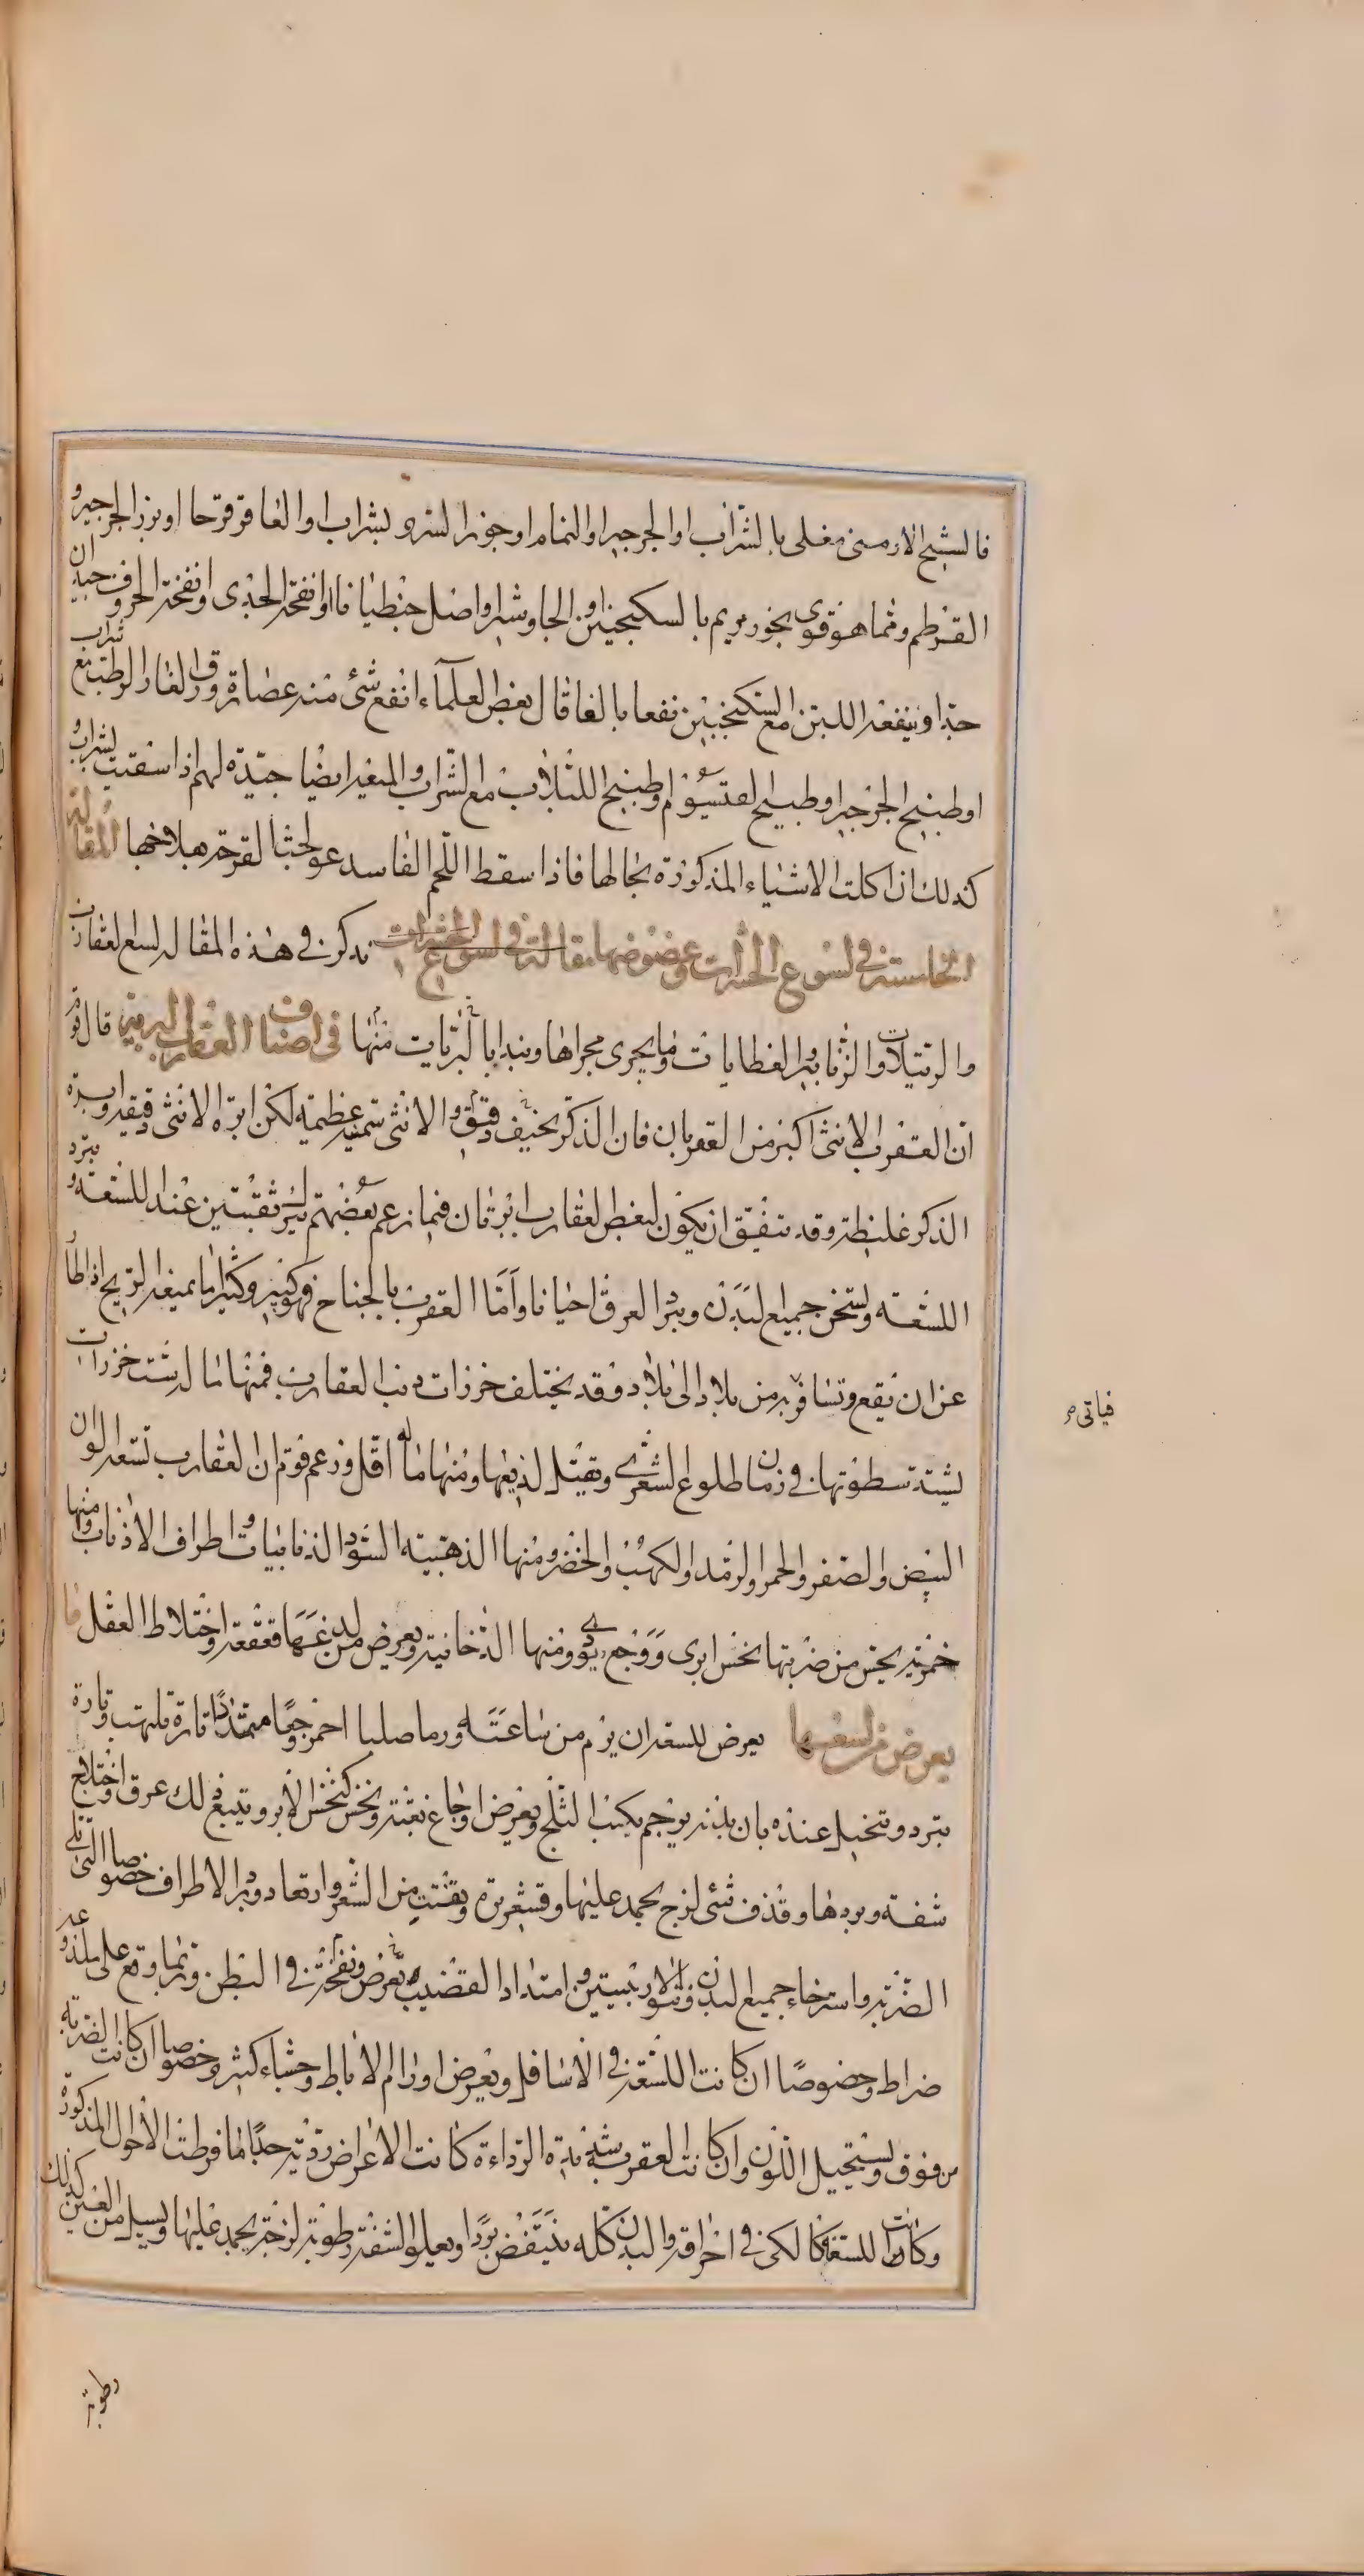 فالشيح الارمنى مغلى بالشراب او الجرجير او النمام او جوز السرو بشراب او العاقرقرحا او بزر الجرجير و
القرطم ومما هو قوى بخور مريم بالسكنجبين او الجاوشير او اصل جنطيانا او انفحة الجدى او انفحة الخروف جيدان
جدا وينفعه اللبن مع السكنجبين نفعا بالغا قال بعض العلماء انفع شئ منه عصارة ورق الغار الرطب مع شراب
او طبيخ الجرجير او طبيخ القيسوم او طبيخ اللبلاب مع الشراب و ايضا جيدة لهم اذا سقيت بشراب و
كذلك اذا اكلت الاشياء المذكورة بحالها فاذا سقط اللحم الفاسد عولجت القرحة بعلاجها المقالة
الخامسة فى لسوع الحشرات وعضوضها مقالة فى لسوع الحشرات نذكر فى هذه المقالة لسع العقارب
والرتيلات والزنابير والعظايات وما يجرى مجراها ونبدا بالبريات منها فى اصناف العقارب البرية قال قوم
ان العقرب الانثى اكبر من العقربان فان الذكر نحيف دقيق والانثى سمينة عظيمة لكن ابرة الانثى دقيقة وابرة
الذكر غليظة وقد يتفق ان يكون لبعض العقارب ابرتان فيما زعم بعضهم يترك ثقبتين عند اللسعة و تبرد
اللسعة ويسخن جميع البدن ويبرد العرق احيانا واما العقرب بالجناح فهو كبير وكثيرا ما يمنعه الريح اذا طار
عن ان يقع وتسافر به من بلاد الى بلاد وقد يختلف خرزات ذنب العقارب فمنها ما له ست خرزات
يشتد سطوتها فى زمان طلوع الشعرى ويقتل لذيعها ومنها ما له اقل وزعم قوم ان العقارب تسعة الوان
البيض والصفر والحمر والرمد والكهب والخضر ومنها الذهبية السود الذنابيات واطراف الاذناب ومنها
خمرية يحس من ضربتها نخس ابرى ووجع ومنها الدخانية ويعرض من لدغها قعقعة واختلاط العقل ما
يعرض من لسعها يعرض للسعه ان يرم من ساعته ورما صلبا احمر وجعا متمددا تارة يلتهب وتارة
يبرد ويتخيل عنده بان بدنه يرجم بكبب الثلج ويعرض اوجاع بغتة ونخس كنخس الابر ويتبع ذلك عرق واختلاج
شفة وبردها وقذف شئ لزج يجمد عليها وقشعريرة وتقتت من الشعر وارتعاد وبرد الاطراف خصوصا التى تلى
الضربة واسترخاء جميع البدن ونتو الاربيتين وامتداد القضيب ويعرض ونفخة فى البطن وربما وقع على ملدوغه
ضراط وخصوصا ان كانت اللسعة فى الاسافل ويعرض اورام الاباط وجشاء كثير وخصوصا ان كانت الضربة
من فوق ويستحيل اللون وان كانت العقرب شديدة الرداءة كانت الاعراض ردية جدا فافرطت الاحوال المذكورة
وكانت اللسعة كالكى فى احراقه والبدن كله ينتفض بردا ويعلو الشفة رطوبة لزجة يجمد عليها ويسيل من العين كذلك
فياتى م
رطوبة